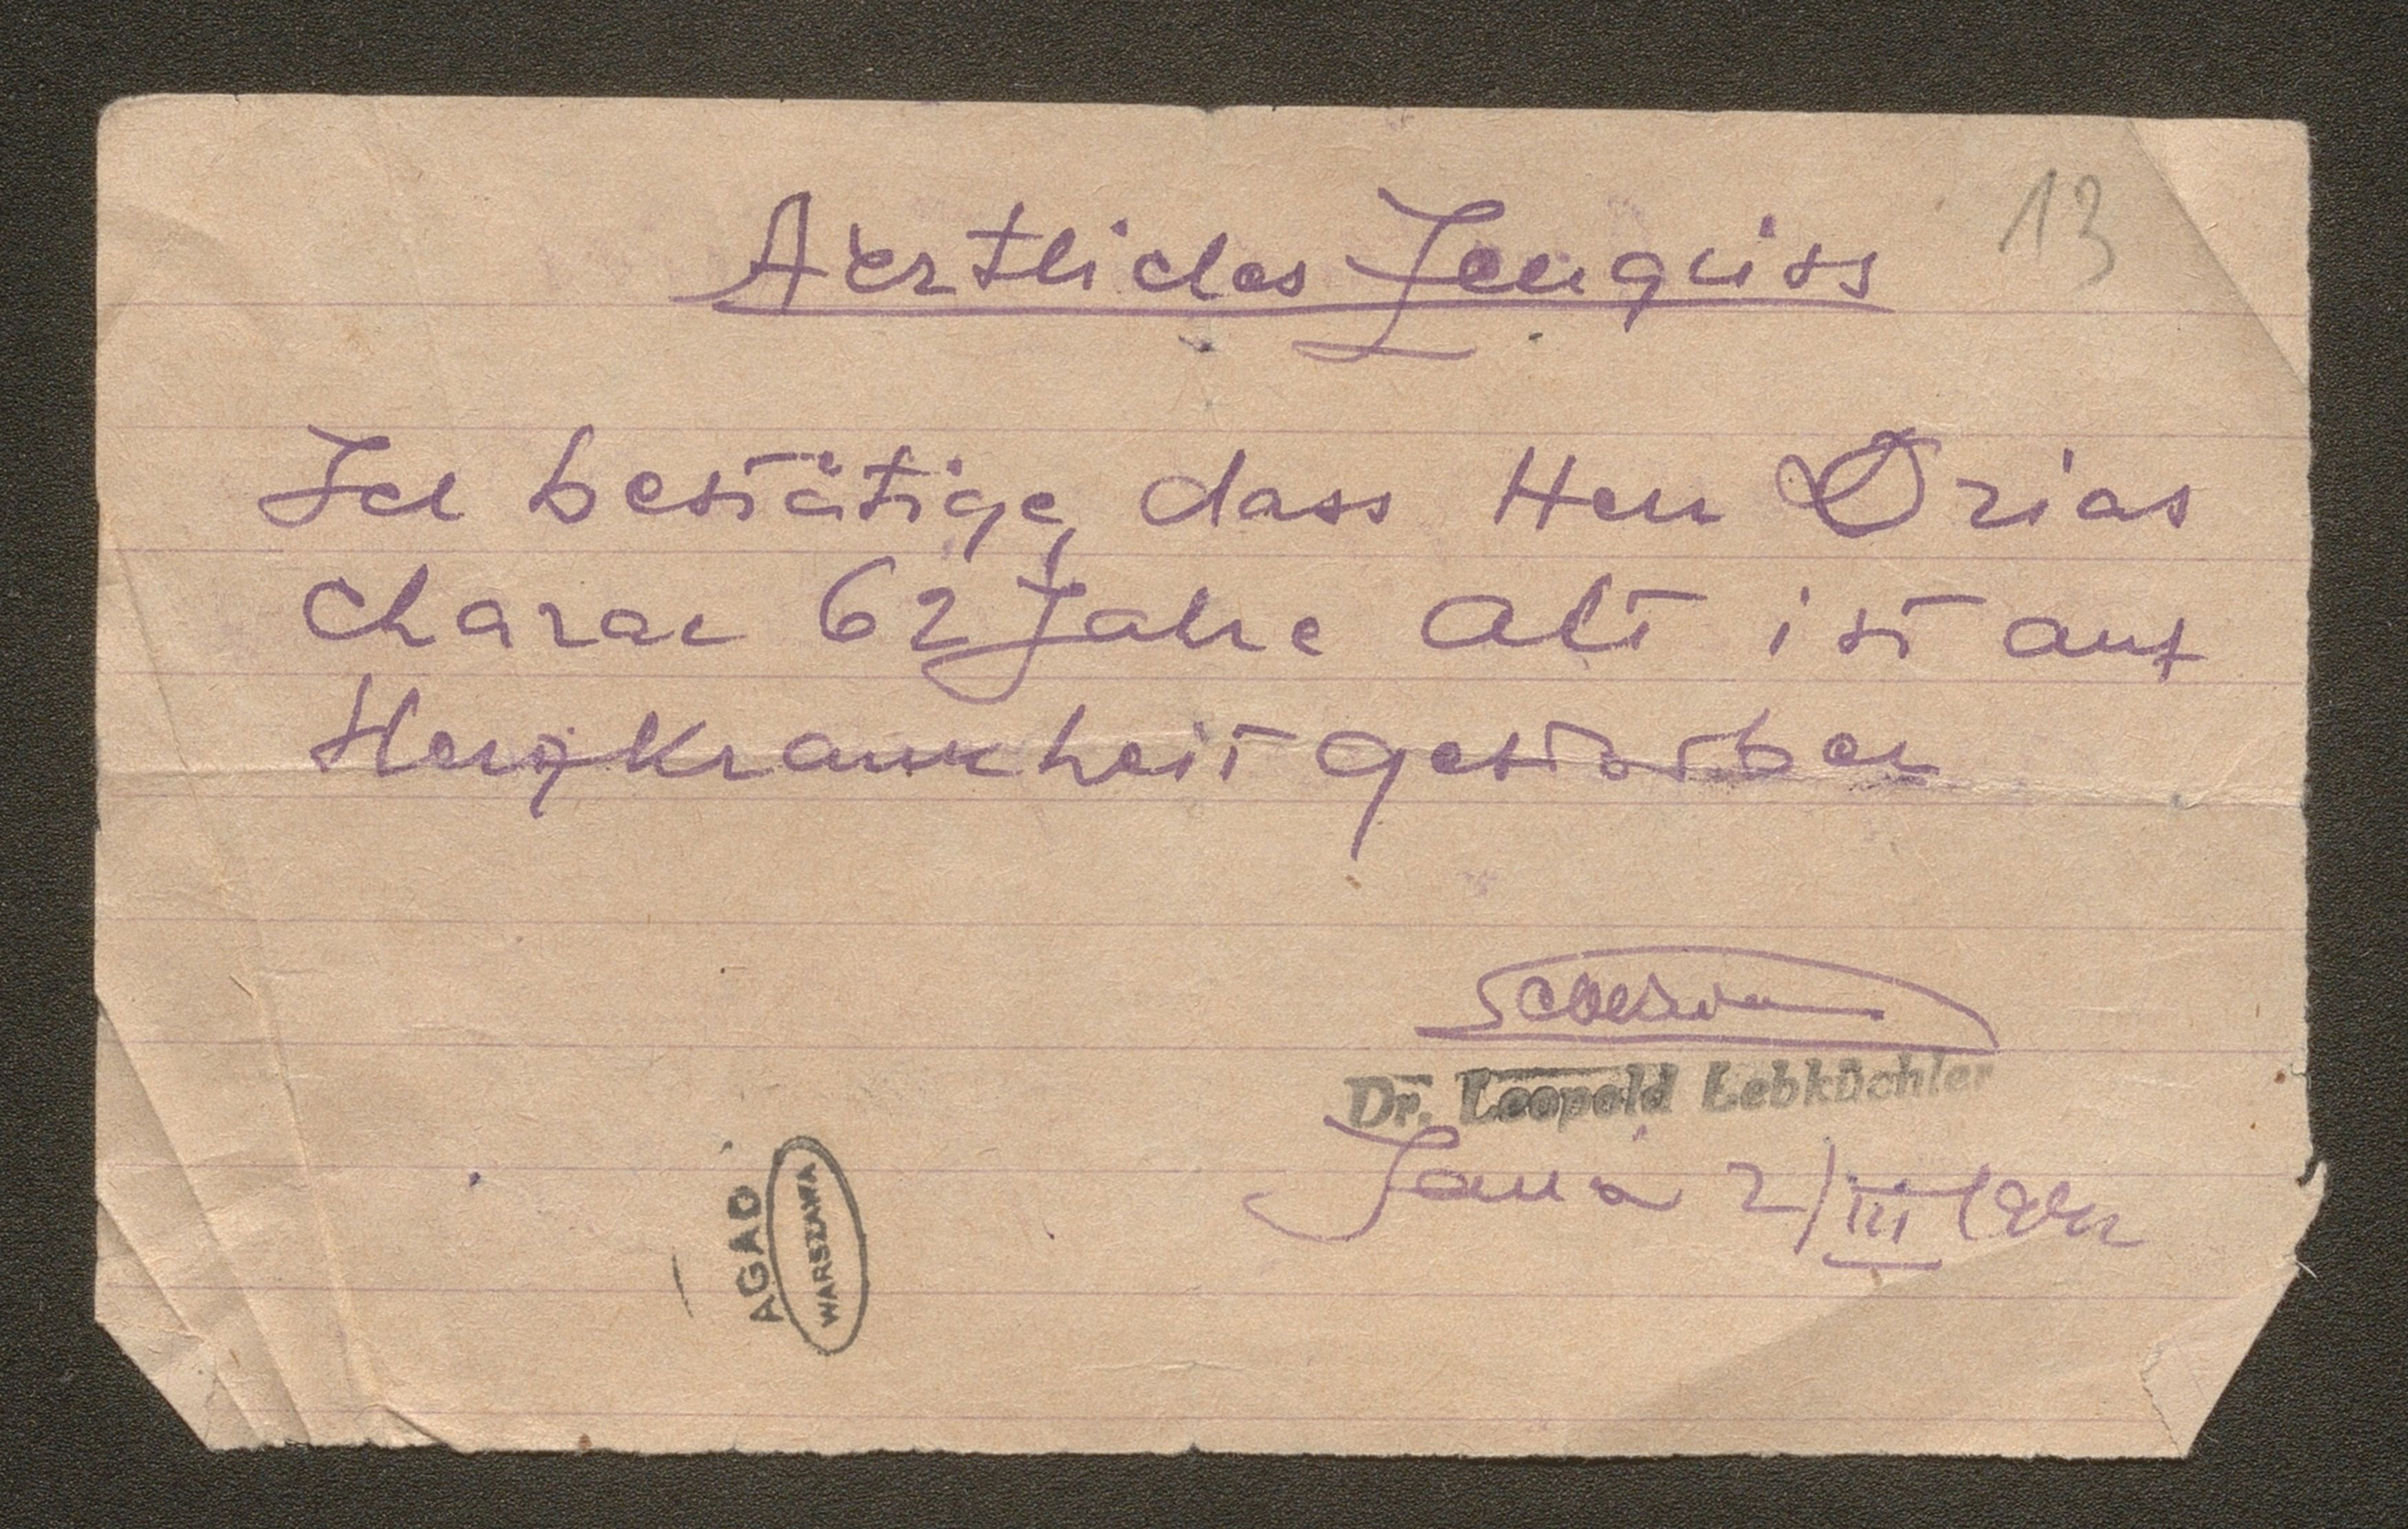 13
Aerztliches Zeugniss
Ich bestätige, dass Herr Ozias
Charar 62 Jahre alt ist auf
Herzkrankheit gestorben
Dr. Leopold Lebküchler
2/III 1942
AGAD
WARSZAWA